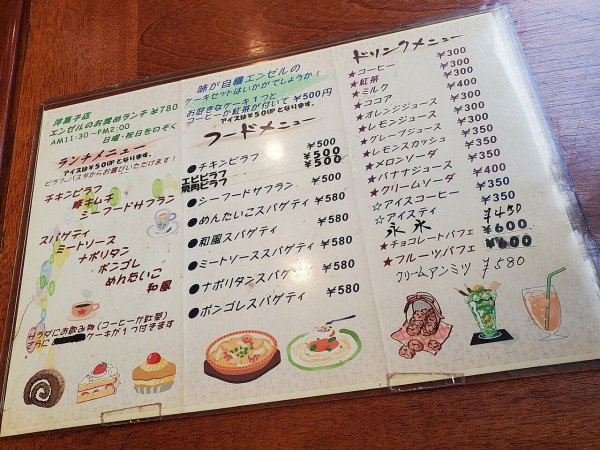 洋菓子店
エンゼルのお奨めランチ ¥780
AM11:30~PM2:00
日曜・祝日をのぞく
ランチメニュー
アイスは¥50UPとなります。
ピラフ~パスタからお選びいただけます!
チキンピラフ
豚キムチ
シーフードサフラン
スパゲティ
ミートソース
ナポリタン
ボンゴレ
めんたいこ
和風
サラダにお飲み物(コーヒーか紅茶)
さらに ケーキが1つ付きます
味が自慢エンゼルの
ケーキセットはいかがでしょうか!
お好きなケーキ1つと
コーヒーか紅茶が付いて ¥500円
アイスは¥50UPとなります。
フードメニュー
●チキンピラフ ¥500
エビピラフ ¥500
焼肉ピラフ ¥500
●シーフードサフラン ¥500
●めんたいこスパゲティ ¥580
●和風スパゲティ ¥580
●ミートソーススパゲティ ¥580
●ナポリタンスパゲティ ¥580
●ボンゴレスパゲティ ¥580
ドリンクメニュー
★コーヒー ¥300
★紅茶 ¥300
★ミルク ¥300
★ココア ¥400
★オレンジジュース ¥300
★レモンジュース ¥350
★グレープジュース ¥350
★レモンスカッシュ ¥350
★メロンソーダ ¥350
★バナナジュース ¥400
★クリームソーダ ¥400
☆アイスコーヒー ¥350
☆アイスティ ¥350
氷 ¥450
★チョコレートパフェ ¥600
★フルーツパフェ ¥600
クリームアンミツ ¥580